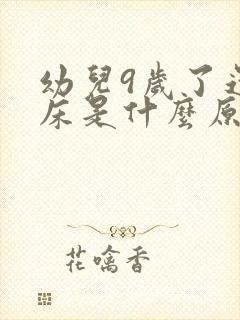 幼兒9歲了
床是什麼原
花嚼香